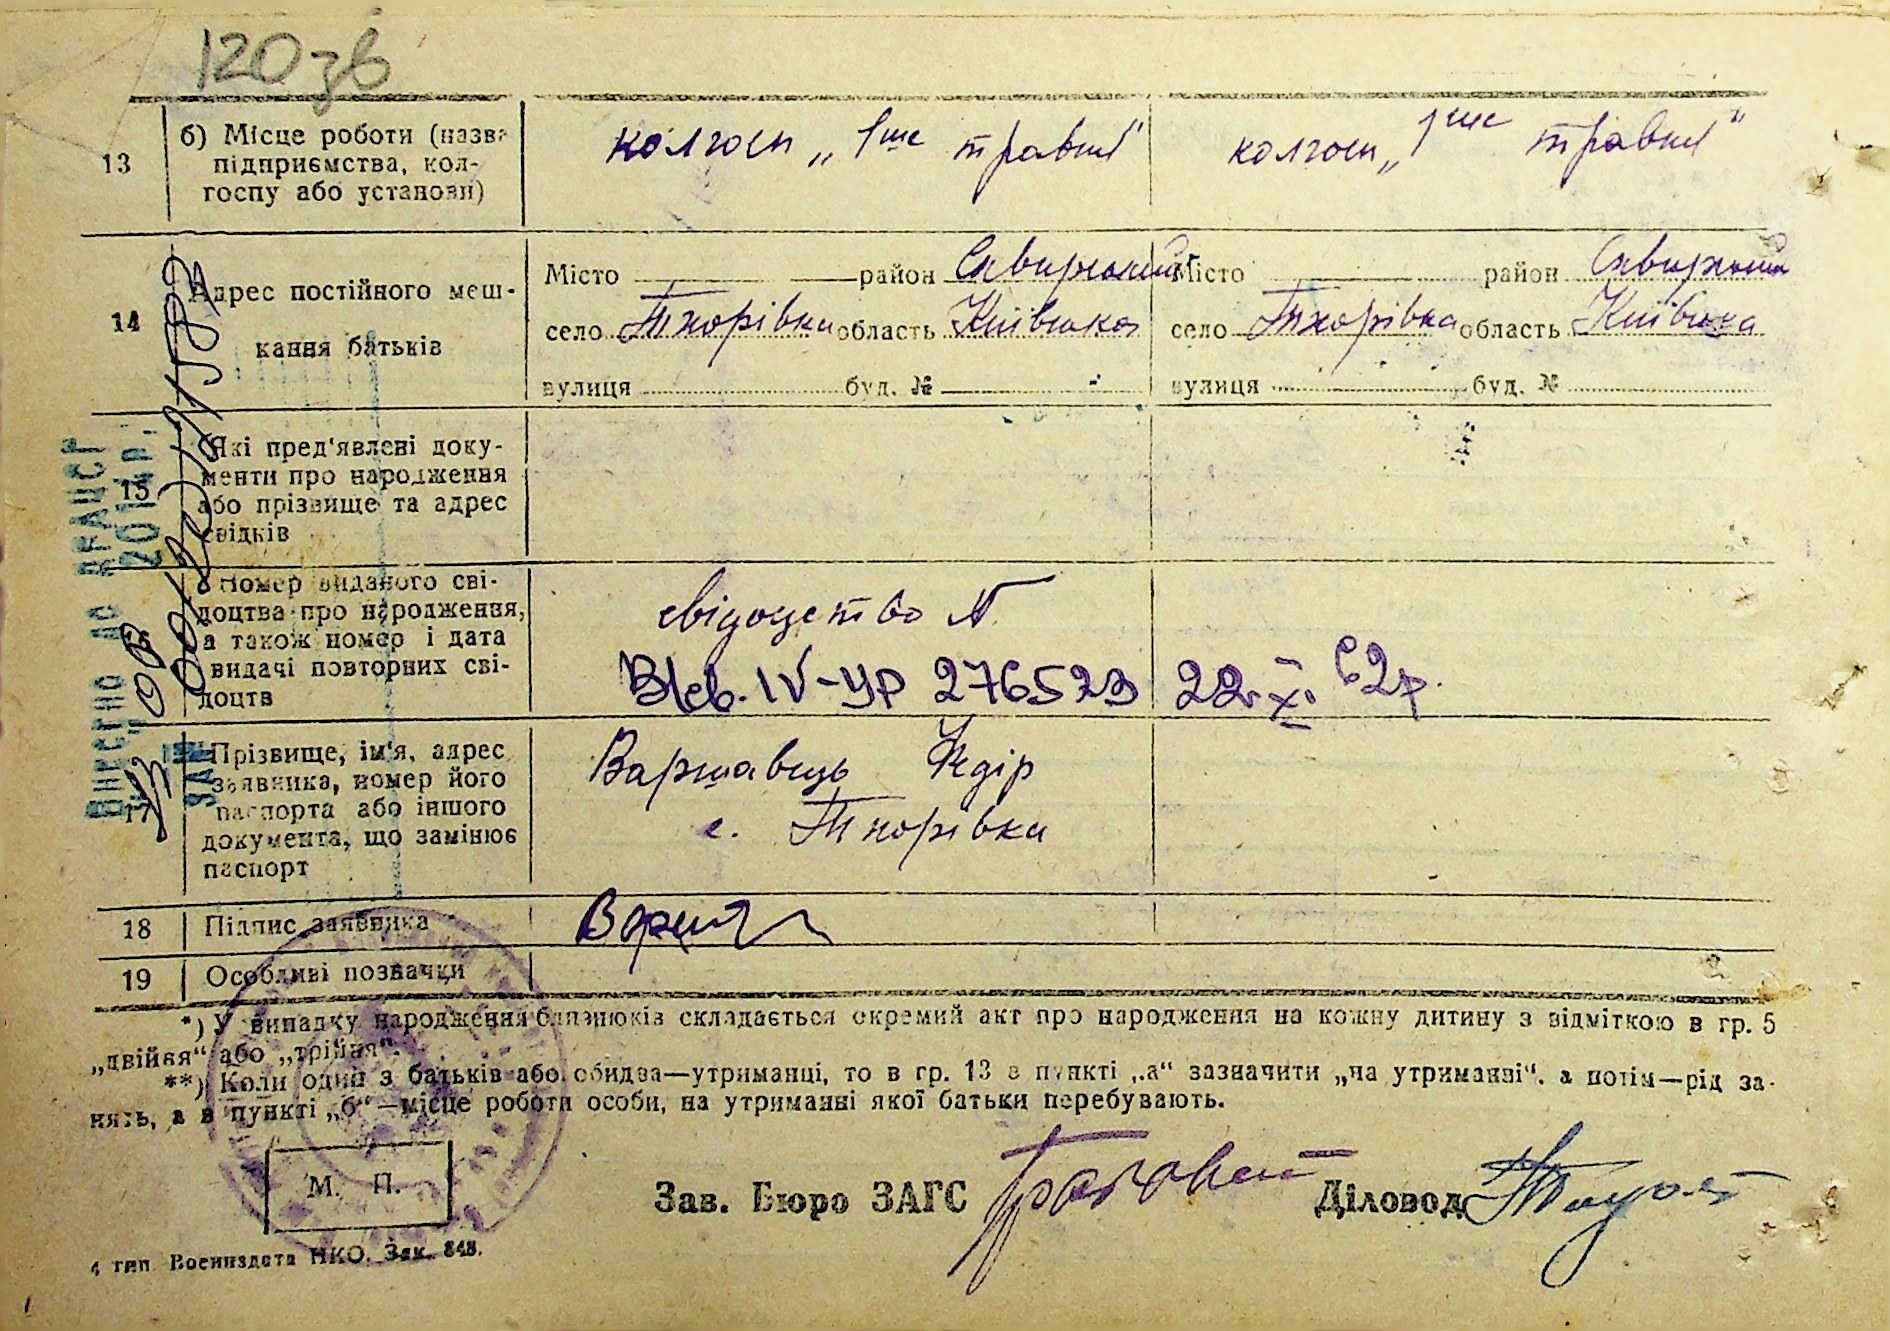 120 зв
13 б) Місце роботи (назва підприємства, колгоспу або установи)
колгосп „1ше травня" колгосп „1ше травня"
14 Адрес постійного меш-
кання батьків
Місто район Сквирський Місто район Сквирський
село Тхорівка область Київська село Тхорівка область Київська
вулиця буд. № вулиця буд. №
15 Які пред'явлені доку-
менти про народження
або прізвище та адрес
свідків
16 Номер виданого сві-
доцтва про народження,
а також номер і дата
видачі повторних сві-
доцтв
свідоцтво N
IV-УР 276523 22. XI. 62р.
17 Прізвище, ім'я, адрес
заявника, номер його
паспорта або іншого
документа, що замінює
паспорт
Варшавець Федір
с. Тхорівка
18 Підпис заявника
19 Особливі позначки
*) У випадку народження близнюків складається окремий акт про народження на кожну дитину з відміткою в гр. 5
„двійня“ або „трійня“.
**) Коли один з батьків або обидва—утриманці, то в гр. 13 в пункті „а“ зазначити „на утриманні“, а потім—рід за-
нять, а в пункті „б“—місце роботи особи, на утриманні якої батьки перебувають.
М. П.
Зав. Бюро ЗАГС Діловод
4 тип. Воениздата НКО. Зак. 848.
ВНЕСЕНО ДО ДРАЦСГ